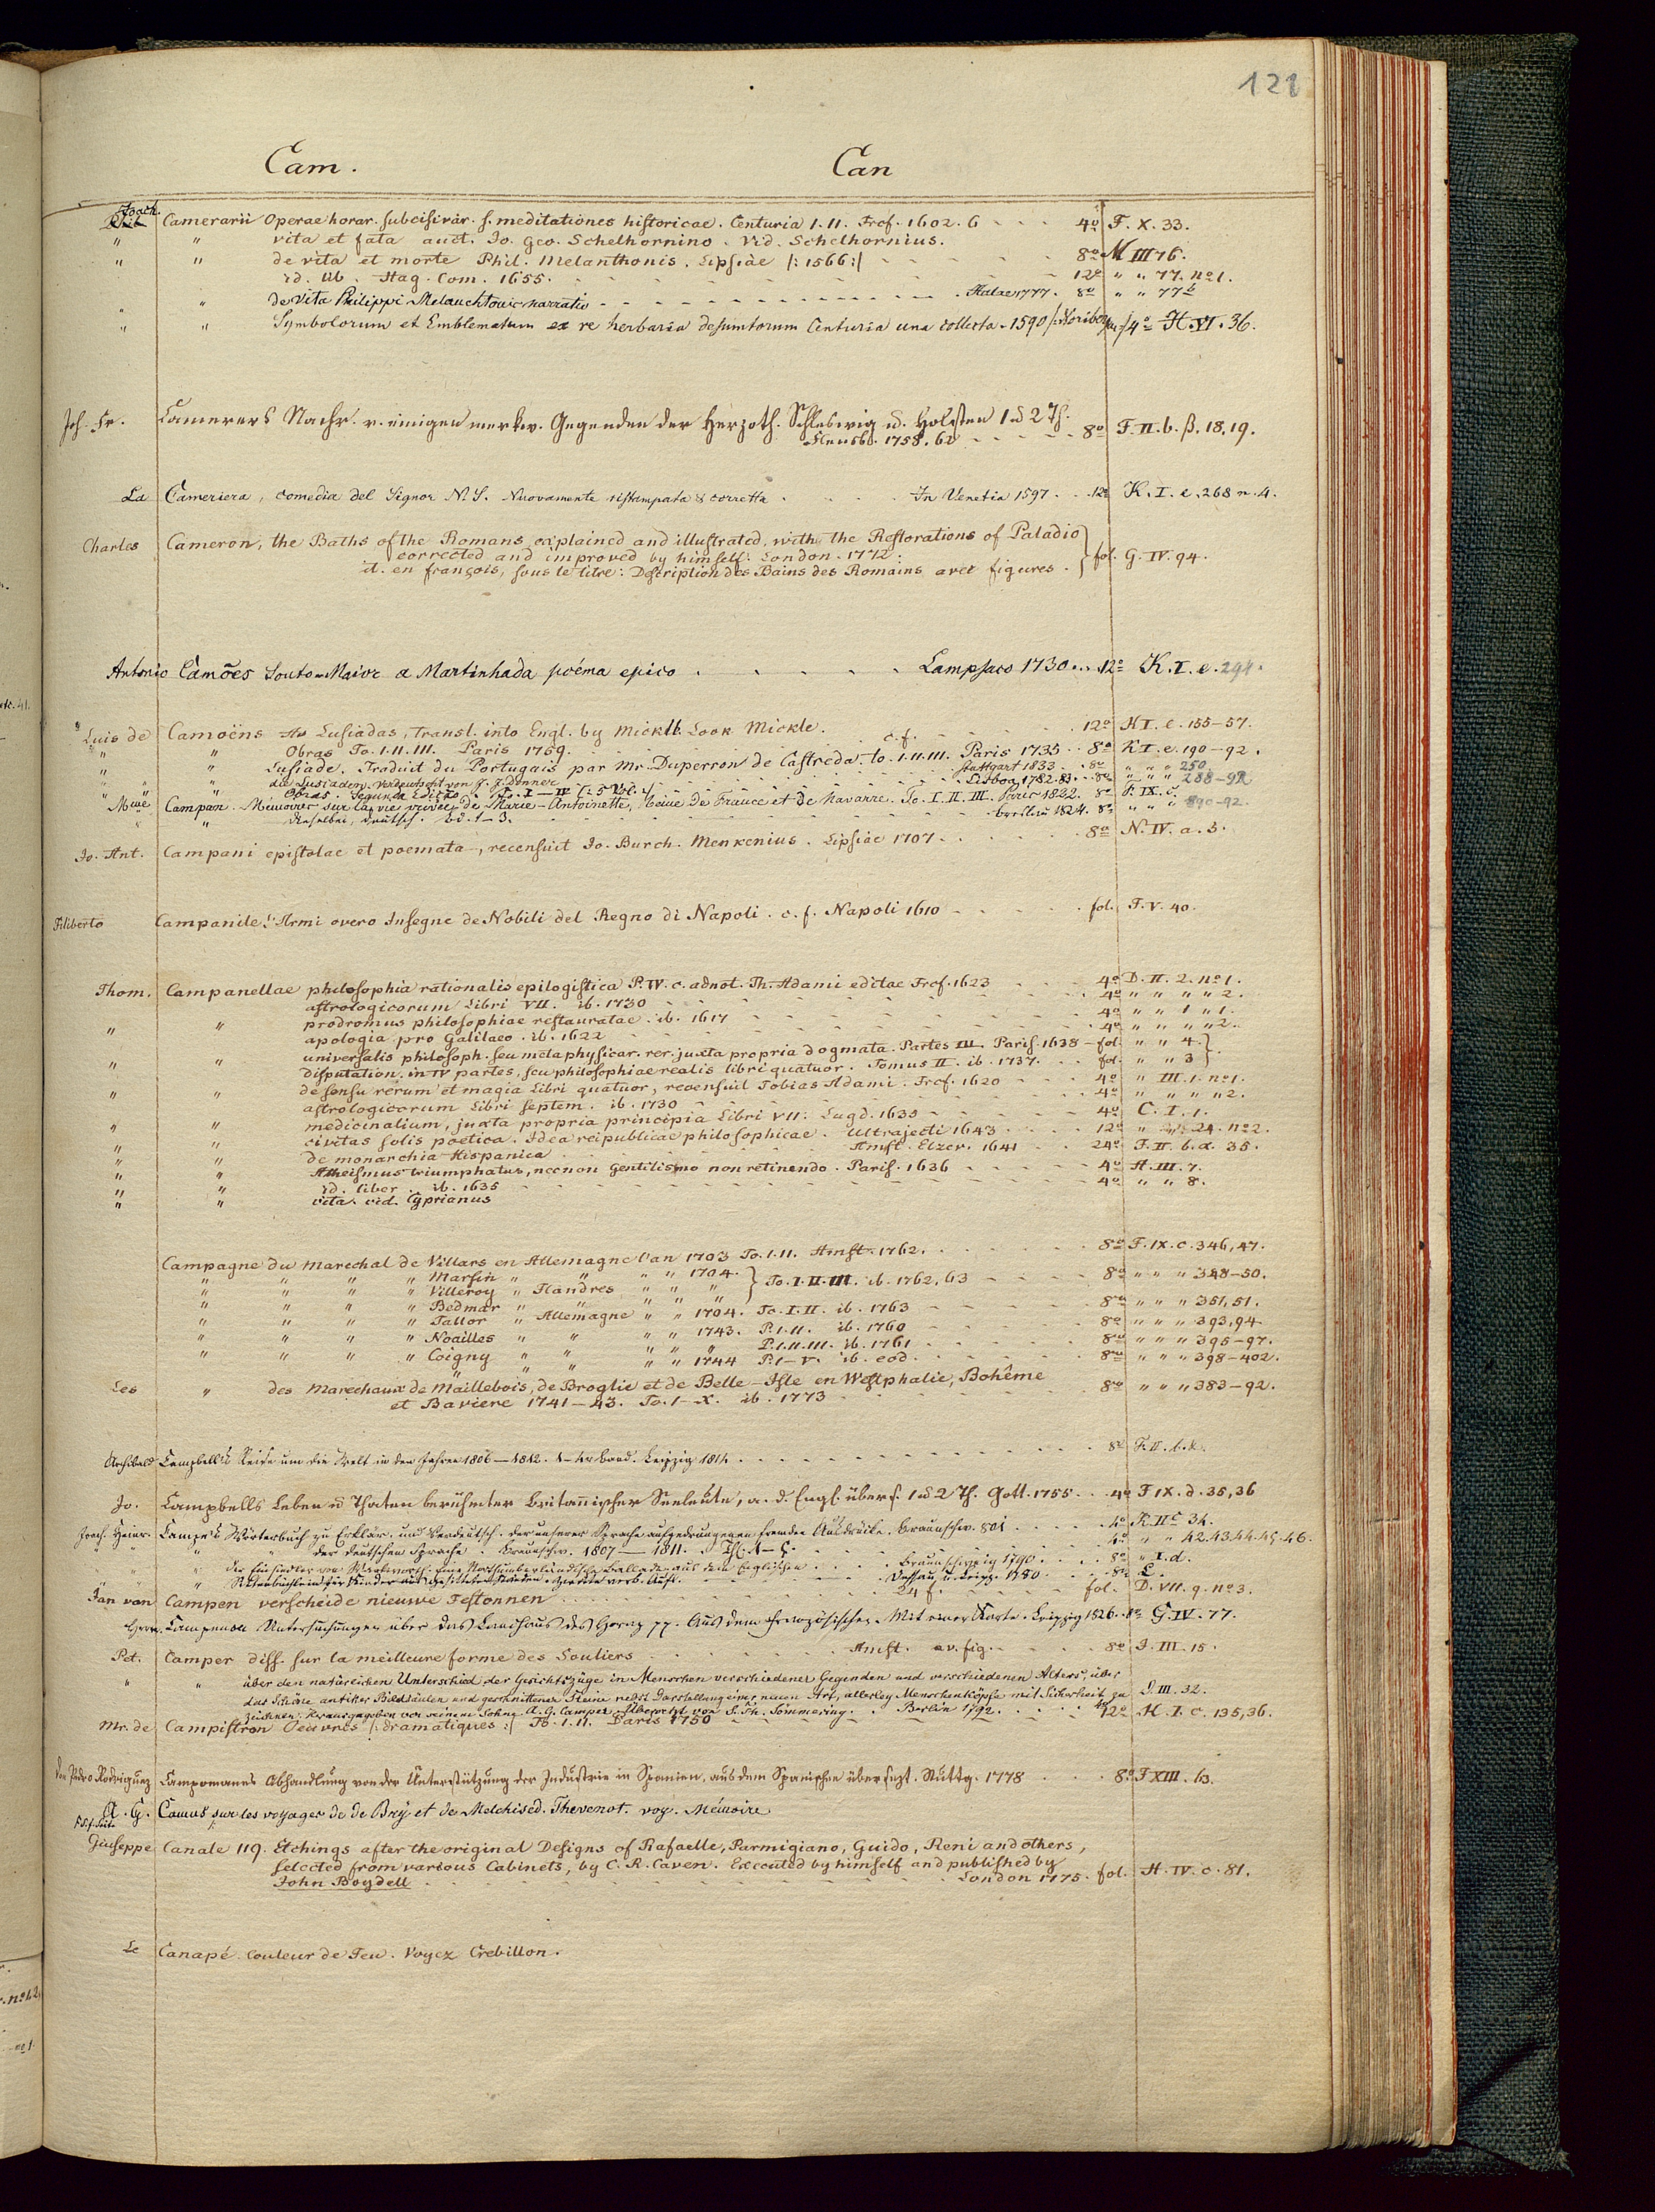 121
Cam. Can
Joach. Camerarii Operae horar. subcisivar. s. meditationes historicae. Centuria 1. 11. Frcf. 1602. 6 - - - 4º F. X. 33.
" " vita et fata auct. Jo. Geo. Schelhornino. Vid. Schelhornius.
" " de vita et morte Phil. Melanthonis. Lipsiae /: 1566 :/ - - - 8º M III 76.
id. lib. Hag. Com. 1655. - - - 12º " " 77. nº 1.
" " de Vita Philippi Melanchtonis narratio - - - Halae 1777. 8º " " 77b
" " Symbolorum et Emblematum ex re herbaria desumtorum Centuria una collecta. 1590 4º H. VI. 36.
Joh. Fr. Camerers Nachr. v. einigen merkw. Gegenden der Herzoth. Schleswig u. Holstein 1 u 2 Th.
Flensb. 1758. 62 - - - 8º F. II. b. β. 18, 19.
La Cameriera, comedia del Signor N. S. Nuovamente ristampata & corretta . . . In Venetia 1597 . . 12º K. I. e. 268 n. 4.
Charles Cameron, the Baths of the Romans explained and illustrated, with the Restorations of Paladio
corrected and improved by himself: London. 1772.
it. en françois, sous le titre: Description des Bains des Romains avec figures. } fol. G. IV. 94.
Antonio Camões Souto-Maior a Martinhada poéma epico . . . . . Lampsaco 1730 . . . 12º K. I. e. 294.
Luis de Camoëns Lusiadas, Transl. into Engl. by Mickle. Look Mickle.
" " Obras To. 1. 11. III. Paris 1759. . . . c. f. . . . 12º K I. e. 155-57.
" " Lusiade. Traduit du Portugais par Mr. Duperron de Castreda. to. 1. 11. III. Paris 1735 . . 8º K I. e. 190-92.
" " die Lusiaden. Verdeutscht von J. J. Donner . . . Stuttgart 1833 . . 8º " " " 250.
" " Obras. Segunda Edição. To. I-IV . . . Lisboa 1782. 83. . . 8º " " " 288-92
Mme Campan. Memoires sur la vie privée de Marie-Antoinette, Reine de France et de Navarre. To. I. II. III. Paris 1822. 8º F. IX. c.
" dieselben, deutsch. Bd. 1-3. . . . Breslau 1824. 8º " " " 890-92.
Jo. Ant. Campani epistolae et poemata, recensuit Jo. Burch. Menkenius. Lipsiae 1707 . . . 8º N. IV. a. 3.
Filiberto Campanile L'Armi overo Insegne de Nobili del Regno di Napoli. c. f. Napoli 1610 - - - fol. F. V. 40.
Thom. Campanellae philosophia rationalis epilogistica P. IV. c. adnot. Th. Adami editae Frcf. 1623 4º D. II. 2. nº 1.
astrologicorum Libri VII. ib. 1730 - - - 4º " " " " 2.
" " prodromus philosophiae restauratae. ib. 1617 - - - 4º " " 1 " 1.
apologia pro Galilaeo. ib. 1622 - - - 4º " " " " 2.
" " universalis philosoph. seu metaphysicar. rer. juxta propria dogmata. Partes III. Paris. 1638 - fol. " " 4.
disputation. in IV partes, seu philosophiae realis libri quatuor. Tomus II. ib. 1737. fol. " " 3
" " de sensu rerum et magia Libri quatuor, recensuit Tobias Adami. Frcf. 1620 - - 4º " III. 1. nº 1.
astrologicorum Libri septem. ib. 1730 - - - 4º " " " " 2.
" " medicinalium, juxta propria principia Libri VII: Lugd. 1635 - - - 4º C. I. 1.
" " civitas solis poetica. Idea reipublicae philosophicae. Ultrajecti 1643 - - 12º " 24. nº 2.
" " de monarchia Hispanica . . . Amst. Elzev. 1641 . . 24º F. II. b. α. 35.
" " Atheismus triumphatus, necnon Gentilismo non retinendo. Paris. 1636 - - - 4º H. III. 7.
" " id. liber. ib. 1635 - - - 4º " " 8.
" " vita. vid. Cyprianus
Campagne du Marechal de Villars en Allemagne l'an 1703 To. 1. 11. Amst. 1762. . . . 8º F. IX. c. 346, 47.
" " " " Marsin " " " " 1704.
" " " " Villeroy " Flandres " " " } To. I. II. III. ib. 1762, 63 - - - 8º " " " 348-50.
" " " " Bedmar " " " " "
" " " " Tallor " Allemagne " " 1704. To. I. II. ib. 1763 - - - 8º " " " 351, 51.
" " " " Noailles " " " " 1743. P. 1. 11. ib. 1760 - - - 8º " " " 393, 94
" " " " Coigny " " " " " P. 1. 11. III. ib. 1761 - - - 8º " " " 395-97.
" " " " 1744 P. 1-V. ib. eod. - - - 8º " " " 398-402.
Les " des Marechaux de Maillebois, de Broglie et de Belle-Isle en Westphalie, Bohême
et Baviere 1741-43. To. 1-X. ib. 1773 - - - 8º " " " 383-92.
Archibald Campbell's Reise um die Welt in den Jahren 1806-1812. Leipzig 1814. . . . 8º F. II. b. α.
Jo. Campbells Leben u Thaten berühmter britannischer Seeleute, a. d. Engl. übers. 1 u 2 Th. Gött. 1755 . . . 4º F IX. d. 35, 36
Joach. Heinr. Campe's Wörterbuch zu Erklär. und Verdeutsch. der unserer Sprache aufgedrungenen fremden Ausdrücke. Braunschw. 801 . . . 4º K. II c 34.
" " der deutschen Sprache. Braunschw. 1807-1811. Th. 1-5. . . . 4º " " 42. 43. 44. 45. 46.
" der Einsiedler von Warkworth. Eine Northumberländische Ballade, aus dem Englischen . . . Braunschweig 1790 . . . 8º " I. d.
" Sittenbüchlein für Kinder aus gesitteten Ständen. Dessau u. Leipz. 8º
Jan van Campen verscheide nieuwe Festonnen . . . 24 f. . . . fol. D. VII. q. nº 3.
Campenon Untersuchungen über das Landhaus des Horaz pp. Aus dem Französischen. Mit einer Karte. Leipzig 1826. 8º G. IV. 77.
Pet. Camper diss. sur la meilleure forme des Souliers . . . Amst. av. fig. . . . 8º J. III. 15.
" " über den natürlichen Unterschied der Gesichtszüge in Menschen verschiedener Gegenden und verschiedenen Alters; über
das Schöne antiker Bildsäulen und geschnittener Steine nebst Darstellung einer neuen Art, allerley Menschenköpfe mit Sicherheit zu
zeichnen. Herausgegeben von seinem Sohne A. G. Camper. Übersetzt von S. Th. Sömmering. . Berlin 1792. . . . 4º S. III. 32.
Mr. de Campistron Oeuvres /: dramatiques :/ To. 1. 11. Paris 1750 - - - 12º H. I. c. 135, 36.
Don Pedro Rodriguez Campomanes Abhandlung von der Unterstützung der Industrie in Spanien, aus dem Spanischen übersezt. Stuttg. 1778 . . . 8º F XIII. 63.
A. G. Camus, sur les voyages de de Bry et de Melchised. Thevenot. voy. Mémoire
Giuseppe Canale 119. Etchings after the original Designs of Rafaelle, Parmigiano, Guido, Reni and others,
selected from various Cabinets, by C. R. Caven. Executed by himself and published by
John Boydell . . . London 1775. fol. H. IV. c. 81.
Le Canapé Couleur de Feu. Voyez Crebillon.